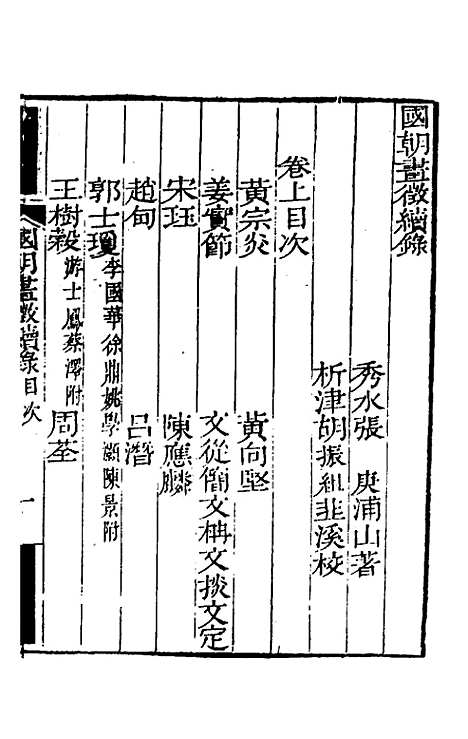 國朝畫徵續錄
秀水張 庚浦山著
析津胡振組韭溪校
卷上目次
黃宗炎 黃向堅
姜實節 文從簡文柟文掞文定
宋珏 陳應麟
趙甸 呂潛
郭士瓊李國華徐鼎姚學 陳景附
王樹穀游士鳳蔡澤附 周荃
國朝畫徵續錄目次 一